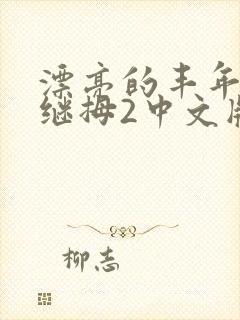 漂亮的丰年
继拇2中文版
柳志